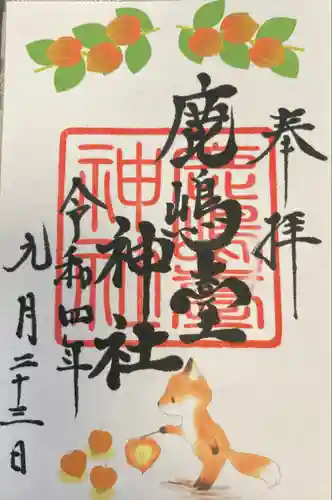 奉拝
鹿嶋臺
神社
令和四年
九月二十三日
鹿嶋臺
神社